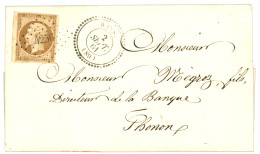 Monsieur
Monsieur Mégroz, fils,
Directeur de la Banque
Thonon